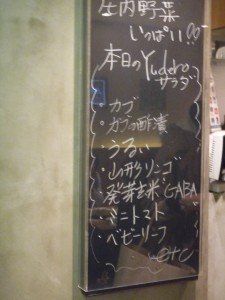 庄内野菜
いっぱい!!
本日のYudero
サラダ
・カブ
・カブの酢漬
・うるい
・山形リンゴ
・発芽玄米"GABA"
・ミニトマト
・ベビーリーフ
etc